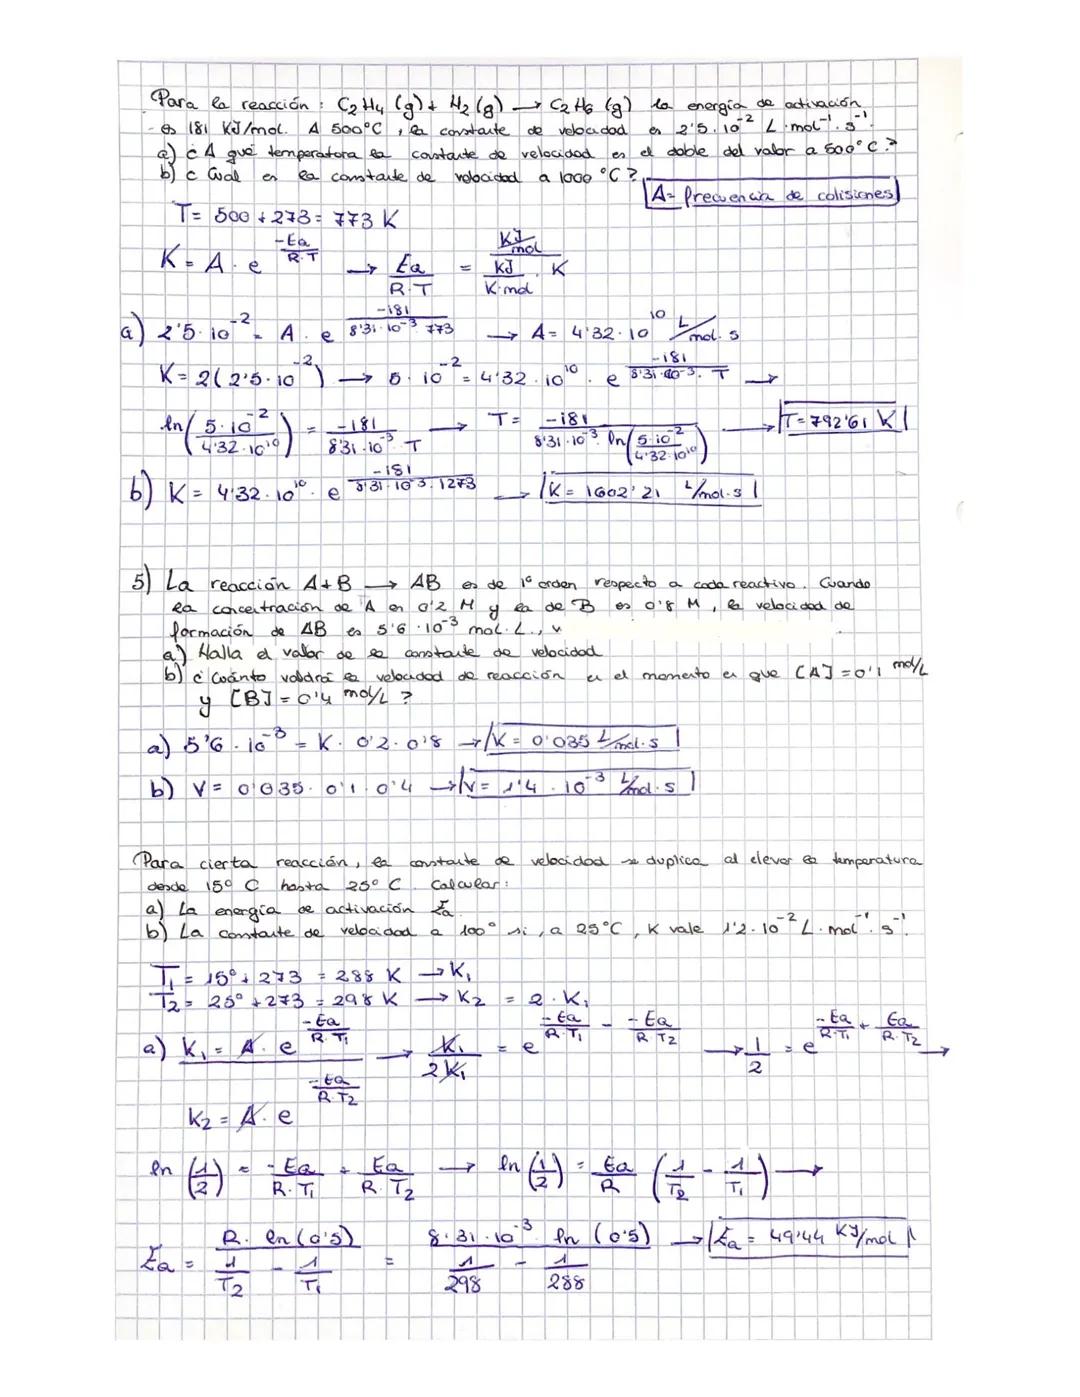 Para la reacción : C2H4 (g) + H2 (g) → C2H6 (g) la energía de activación
es 181 KJ/mol. A 500°C , la constante de velocidad es 2'5.10^-2 L.mol^-1.s^-1.
a) ¿ A qué temperatura la constante de velocidad es el doble del valor a 500°C ?
b) ¿ Cual es la constante de velocidad a 1000 °C ?
A= frecuencia de colisiones
T= 500 + 273 = 773 K
K = A . e^(-Ea/R.T) → Ea/R.T = (KJ/mol)/(KJ/K.mol . K)
a) 2'5.10^-2 = A . e^(-181/8'31.10^-3.773) → A= 4'32.10^10 L/mol.s
K = 2(2'5.10^-2) → 5.10^-2 = 4'32.10^10 . e^(-181/8'31.10^-3.T) →
ln(5.10^-2/4'32.10^10) = -181/8'31.10^-3.T → T= -181/8'31.10^-3 ln(5.10^-2/4'32.10^10) → T= 792'61 K
b) K = 4'32.10^10 . e^(-181/8'31.10^-3.1273) → K= 1602'21 L/mol.s
5) La reacción A+B → AB es de 1º orden respecto a cada reactivo. Cuando
la concentración de A es 0'2 M y la de B es 0'8 M , la velocidad de
formación de AB es 5'6.10^-3 mol.L.,
a) Halla el valor de la constante de velocidad
b) ¿ Cuánto valdrá la velocidad de reacción en el momento en que [A] = 0'1 mol/L
y [B] = 0'4 mol/L ?
a) 5'6.10^-3 = K. 0'2.0'8 → K = 0'035 L/mol.s
b) V = 0'035. 0'1. 0'4 → V = 1'4.10^-3 L/mol.s
Para cierta reacción, la constante de velocidad se duplica al elevar la temperatura
desde 15° C hasta 25° C. Calcular :
a) La energía de activación Ea.
b) La constante de velocidad a 100° si , a 25°C , K vale 1'2.10^-2 L.mol^-1.s^-1.
T1 = 15° + 273 = 288 K → K1
T2 = 25° + 273 = 298 K → K2 = 2.K1
a) K1 = A . e^(-Ea/R.T1) → K1/2K1 = e^(-Ea/R.T1 - -Ea/R.T2) → 1/2 = e^(-Ea/R.T1 + Ea/R.T2) →
K2 = A . e^(-Ea/R.T2)
ln (1/2) = -Ea/R.T1 + Ea/R.T2 → ln (1/2) = Ea/R (1/T2 - 1/T1) →
Ea = R. ln(0'5)/(1/T2 - 1/T1) = 8.31.10^-3. ln (0'5)/(1/298 - 1/288) → Ea = 49'44 KJ/mol